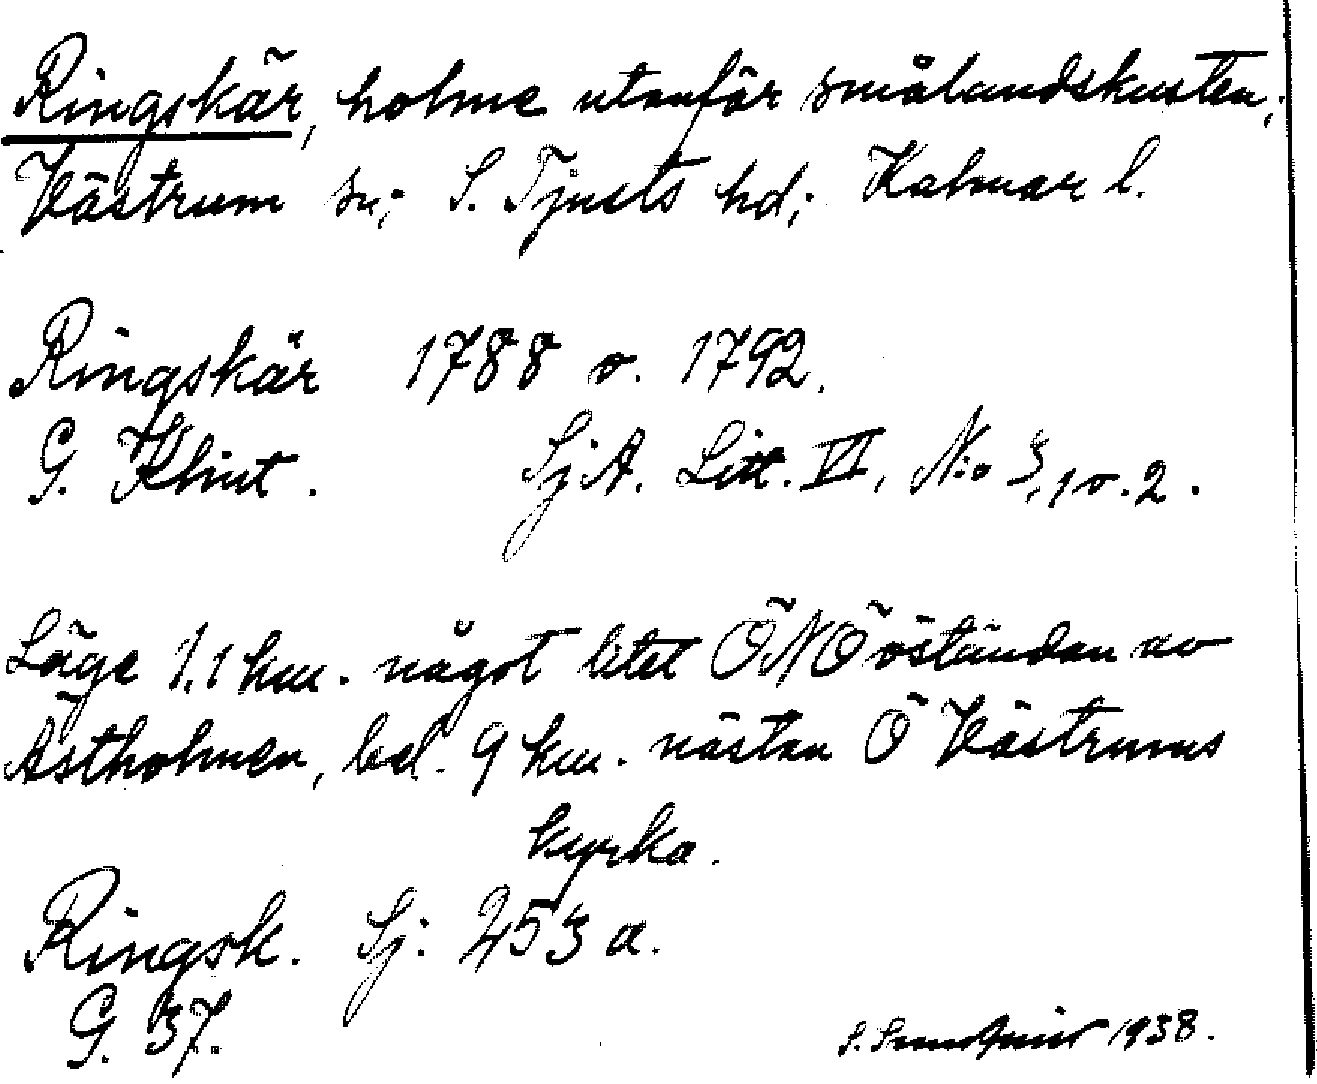 Ringskär, holme utanför smålandskusten;
Västrum sn; S. Tjusts hd; Kalmar l.
Ringskär 1788 o. 1792.
G. Klint. SjA. Litt. VI, N:o 3, 1 o. 2.
Läge 1.1 km. något litet ÖNÖ öständan av
Ästholmen, bel. 9 km. nästan Ö Västrums
kyrka.
Ringsk. Sj: 253 a.
G. 37.
S. 1938.